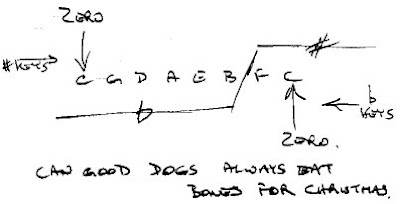 ZERO
# KEYS
#
C G D A E B F C
b
b KEYS
ZERO.
CAN GOOD DOGS ALWAYS EAT
BONES FOR CHRISTMAS.